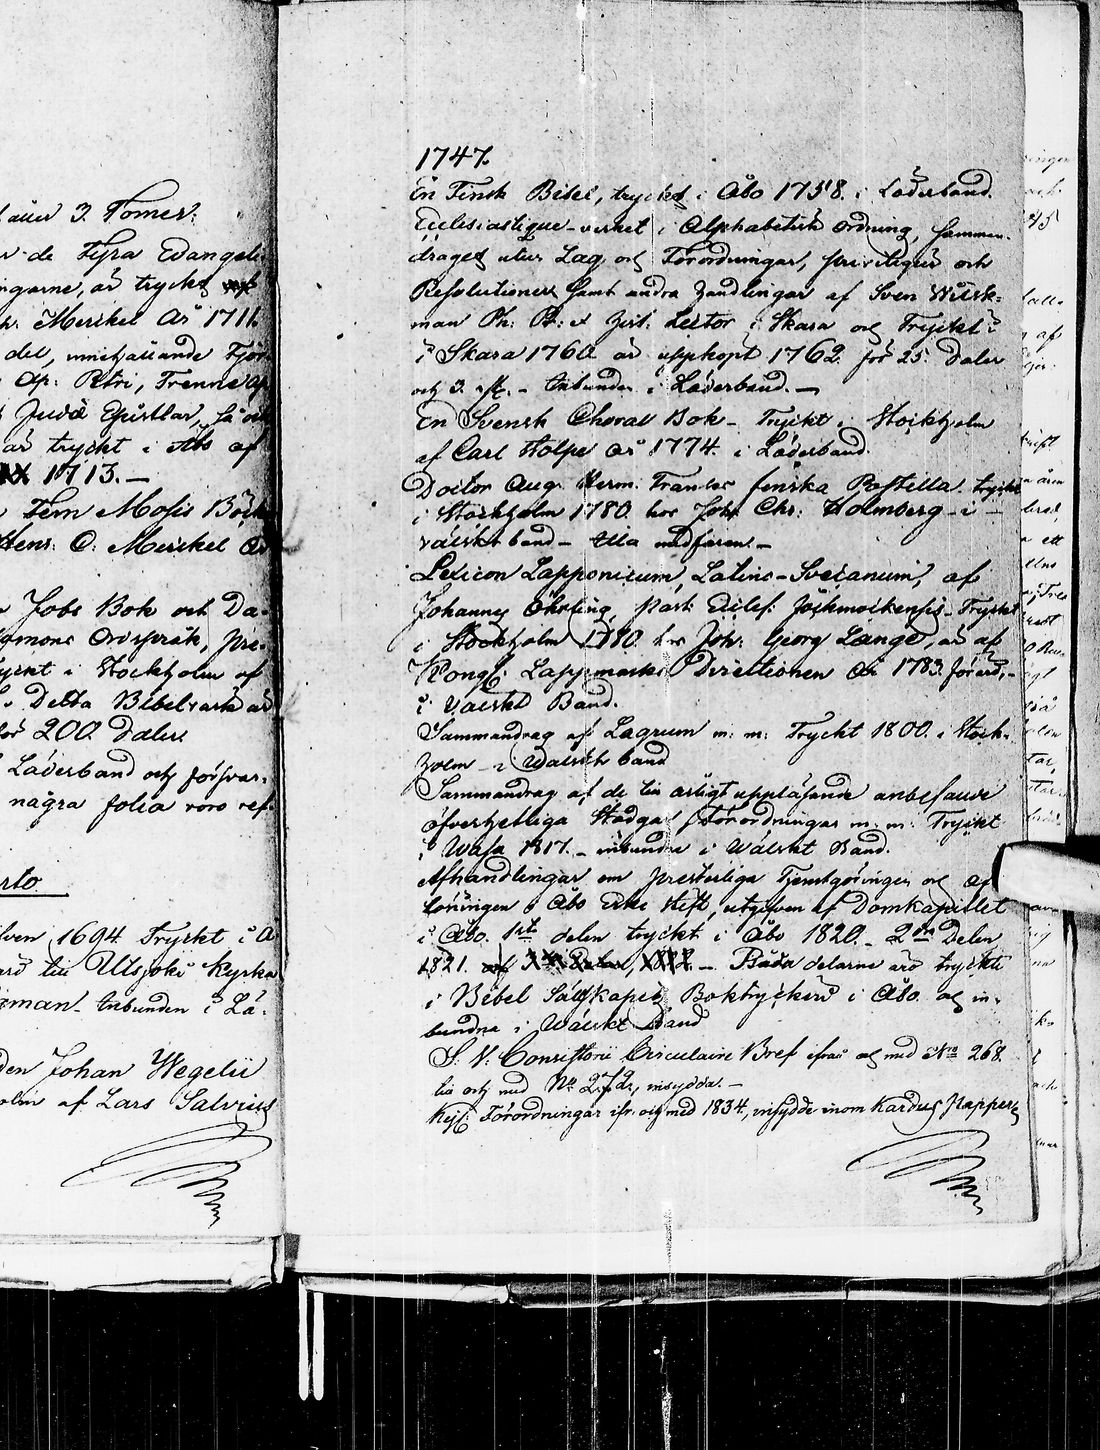 auer 3. Tomer.
de Fyra Evangeli
ngarne, är tryckt
Merckel År 1711.
del, innehållande
Ap: Petri, Trenne Ap
Judæ Epistlar, så
är tryckt i Åbo af
1713. —
Fem Mosis Böck
Henr: C. Merckel År
Jobs Bok och Da-
omons Ordspråk, Pre-
yckt i Stockholm af
Detta Bibelvärk är
för 200 Daler.
Läderband och försvar-
några folia voro ref-
rto.
1694 Tryckt i Å
till Utsjoki Kyrka
man. Inbunden i Lä-
den Johan Wegelii
olm af Lars Salvius
1747.
En Finsk Bibel, tryckt i Åbo 1758. i Läderband.
Ecclesiastique-verket i Alphabetisk ordning, samman-
draget utur Lag och Förordningar, privilegier och
Resolutioner samt andra handlingar af Sven Wilsk-
man Ph: et Hist. Lector i Skara och Tryckt
i Skara 1760. är uppköpt 1762. för 25 Daler
och 3. - Inbunden i Läderband. —
En Svensk Choral Bok - Tryckt i Stockholm
af Carl Stolpe år 1774. i Läderband.
Doctor Aug. Herm. Franckes finska Postilla. tryckt
i Stockholm 1780. hos Joh. Chr: Holmberg - i -
välskt band - Illa medfaren. -
Lexicon Lapponicum, Latino-Svecanum, af
Johannes Öhrling, Past: Eccles: Jockmockensis - Tryckt
i Stockholm 1780. hos Joh: Georg Lange, är af
Kongl: Lappmarks Directionen År 1783. förärd, -
i Välskt Band.
Sammandrag af Lagrum m: m: Tryckt 1800. i Stock-
holm - i Wälskt band
Sammandrag af de till årligt uppläsande anbefallde
öfverhetliga Stadgar, Förordningar m: m: Tryckt
i Wasa 1817. - inbundna i Wälskt Band.
Afhandlingar om presterliga Tjenstgöringen och af-
löningen i Åbo Erke Stift, utgifven af Domkapitlet
i Åbo. 1sta delen tryckt i Åbo 1820. - 2dra Delen
1821. - Båda delarne äro tryckte
i Bibel Sällskapets Boktryckeri i Åbo. och in-
bundne i Wälskt Band
S. V. Consistorii Circulaire Bref ifrån och med No 268.
till och med No 272, insydda. -
Kejs: Förordningar ifr. och med 1834, insydde inom Kardus Papper